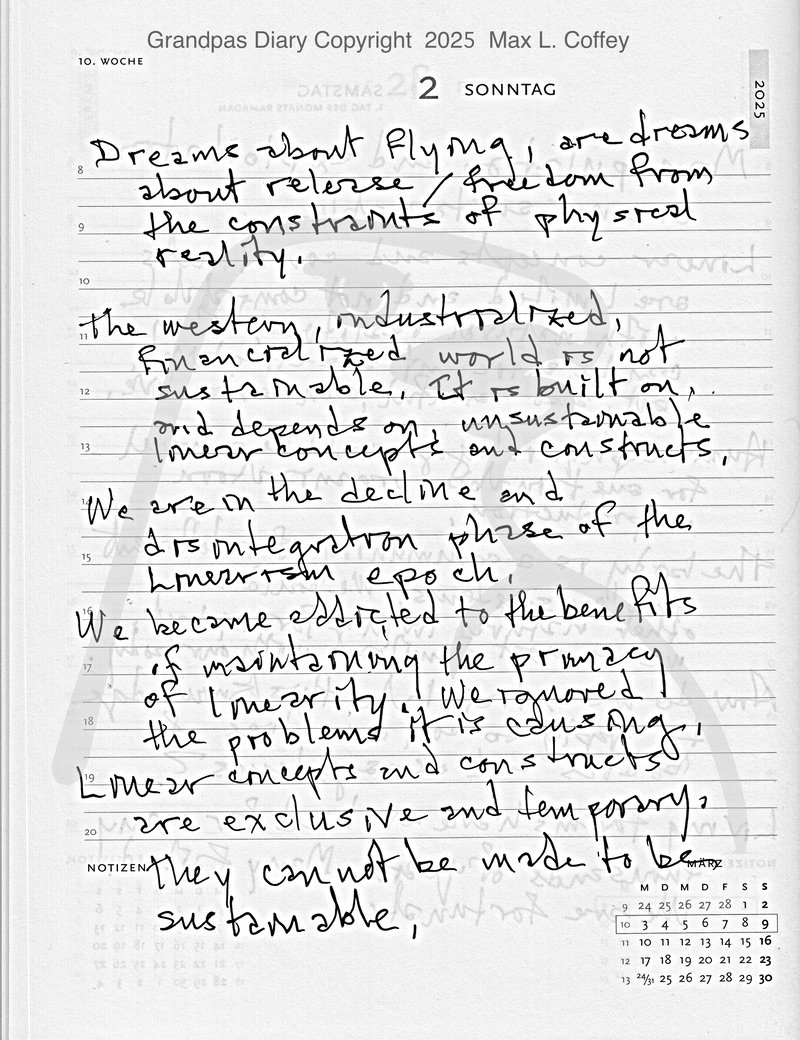 Grandpas Diary Copyright 2025 Max L. Coffey
10. WOCHE
2 SONNTAG
2025
Dreams about flying, are dreams
8
about release / freedom from
the constraints of physical
9
reality.
10
The western, industrialized,
11
financialized world is not
12
sustainable. It is built on,
and depends on, unsustainable
13
linear concepts and constructs.
14
We are in the decline and
disintegration phase of the
15
Linearism epoch.
16
We became addicted to the benefits
of maintaining the primacy
17
of linearity. We ignored
18
the problems it is causing.
19
Linear concepts and constructs
are exclusive and temporary.
20
NOTIZEN They cannot be made to be
sustainable.
MÄRZ
M D M D F S S
9 24 25 26 27 28 1 2
10 3 4 5 6 7 8 9
11 10 11 12 13 14 15 16
12 17 18 19 20 21 22 23
13 24/31 25 26 27 28 29 30